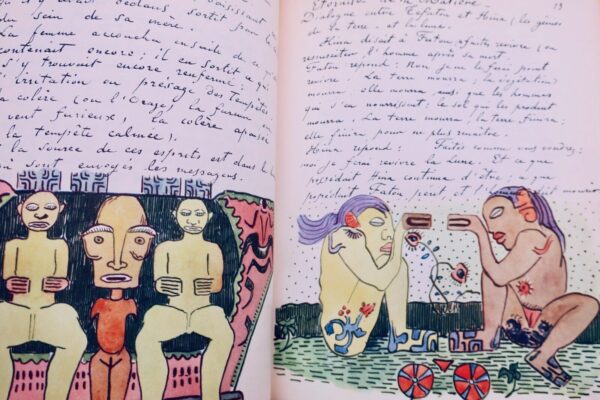 sein de sa mère.
La femme accoucha ensuite de ce qu'
contenait encore; il en sortit ce qui
s'y trouvait encore renfermé:
l'irritation ou présage des tempêtes
colère (ou l'Orage), la fureur
vent furieux, la colère apaisée
la tempête calmée).
la source de ces esprits est dans le
d'où sont envoyés les messagers.
13
Eternité de la Matière.
Dialogue entre Téfatou et Hina (les génies
de la terre. et la lune.
Hina disait à Fatou: "faites revivre (ou
ressusciter l'homme après sa mort.
Fatou répond: Non je ne le ferai point
revivre. La terre mourra; la végétation
mourra; elle mourra, ainsi que les hommes
qui s'en nourrissent; le sol qui les produit
mourra. La terre mourra la terre finira;
elle finira pour ne plus renaître.
Hina répond: Faites comme vous voudrez;
moi je ferai revivre la Lune. Et ce que
possédait Hina continua d'être; ce que
possédait Fatou périt, et l'homme dut mourir.